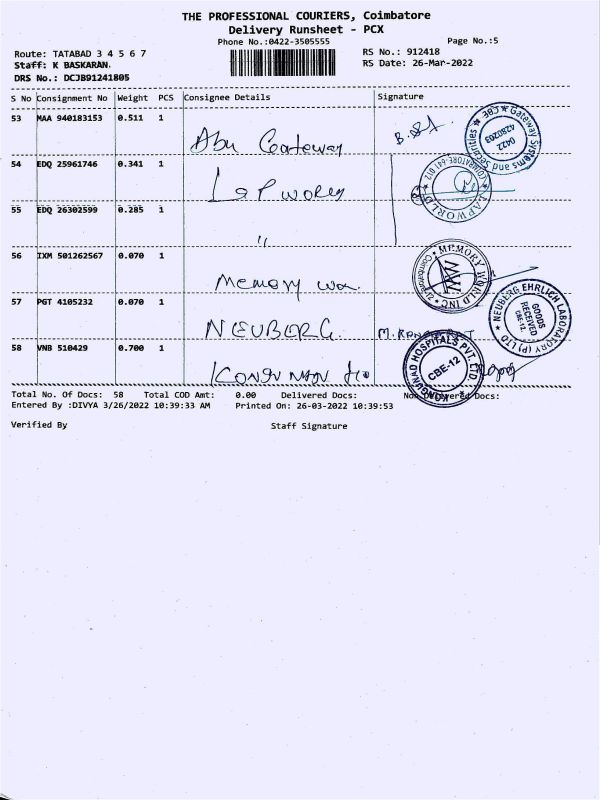 THE PROFESSIONAL COURIERS, Coimbatore
Delivery Runsheet - PCX
Phone No.:0422-3505555
Page No.:5
Route: TATABAD 3 4 5 6 7
RS No.: 912418
Staff: K BASKARAN.
RS Date: 26-Mar-2022
DRS No.: DCJB91241805
S No Consignment No Weight PCS Consignee Details Signature
53 MAA 940183153 0.511 1
Abu Gateway
Gateway Systems and Securities ★ CBE ★
0422 4280203
54 EDQ 25961746 0.341 1
Lap world
★ LAPWORLD ★ COIMBATORE-641 012
55 EDQ 26302599 0.285 1
"
56 IXM 501262567 0.070 1
Memory wor
★ MEMORY WORLD INC
MW
57 PGT 4105232 0.070 1
NEUBERG.
★ NEUBERG EHRLICH LABORATORY (P) LTD
GOODS RECEIVED CBE-12.
58 VNB 510429 0.700 1
KONGUNADU
KONGUNAD HOSPITALS PVT. LTD. ★
CBE-12
Total No. Of Docs: 58 Total COD Amt: 0.00 Delivered Docs: Non Delivered Docs:
Entered By :DIVYA 3/26/2022 10:39:33 AM Printed On: 26-03-2022 10:39:53
Verified By Staff Signature